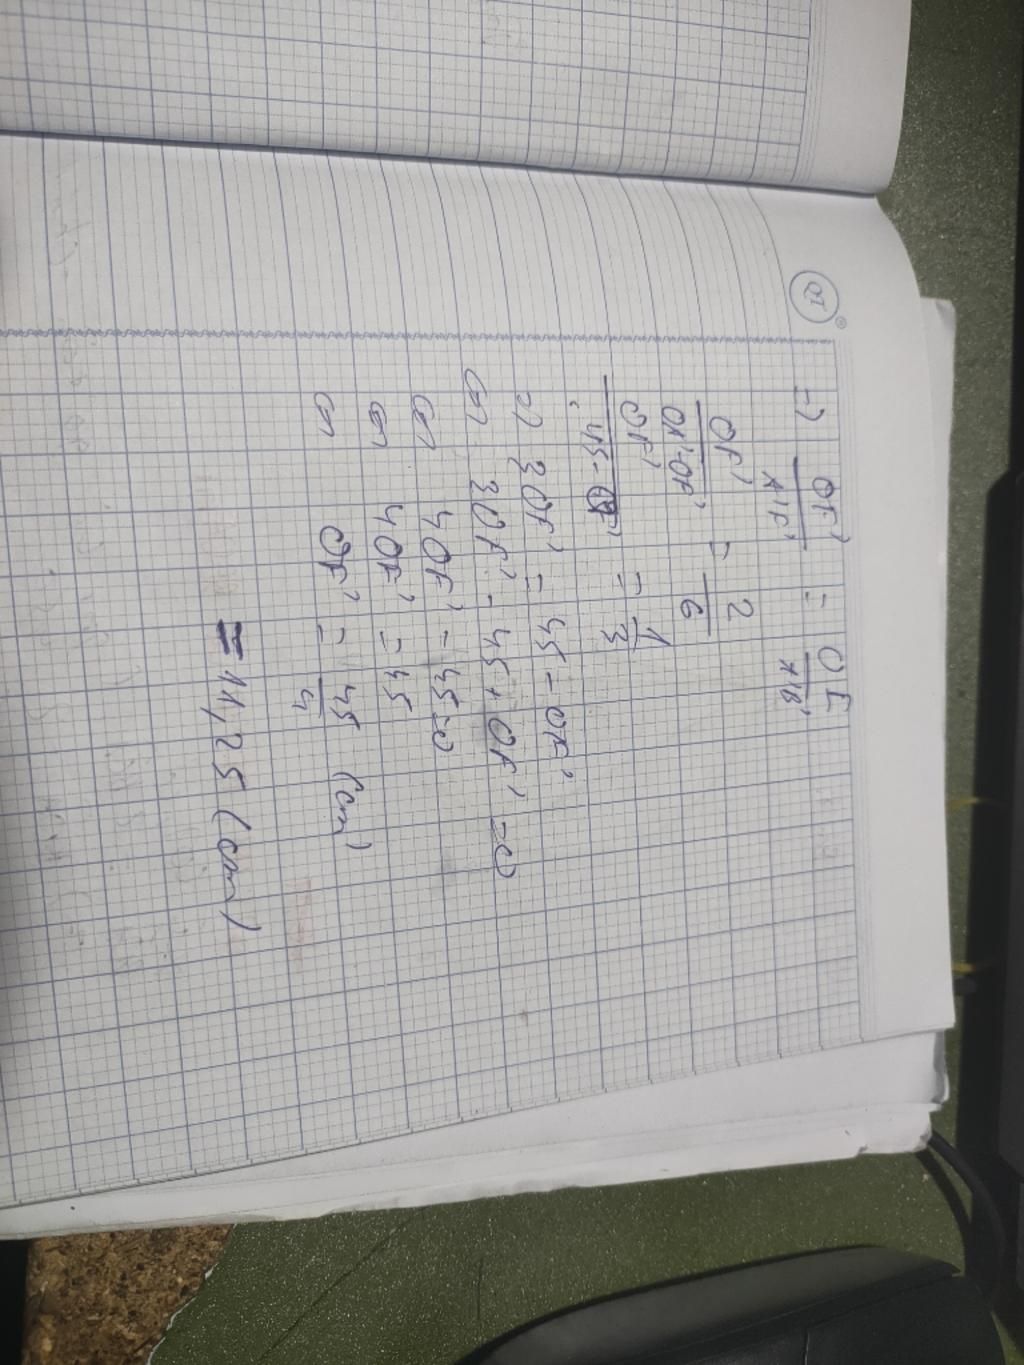 07
=) OF' / A'F' = OE / A'B'
OF' / OA'-OF' = 2 / 6
OF' / 45-OF' = 1 / 3
=) 3OF' = 45 - OF'
(=) 3OF' - 45 + OF' = 0
(=) 4OF' - 45 = 0
(=) 4OF' = 45
(=) OF' = 45 / 4 (cm)
= 11,25 (cm)